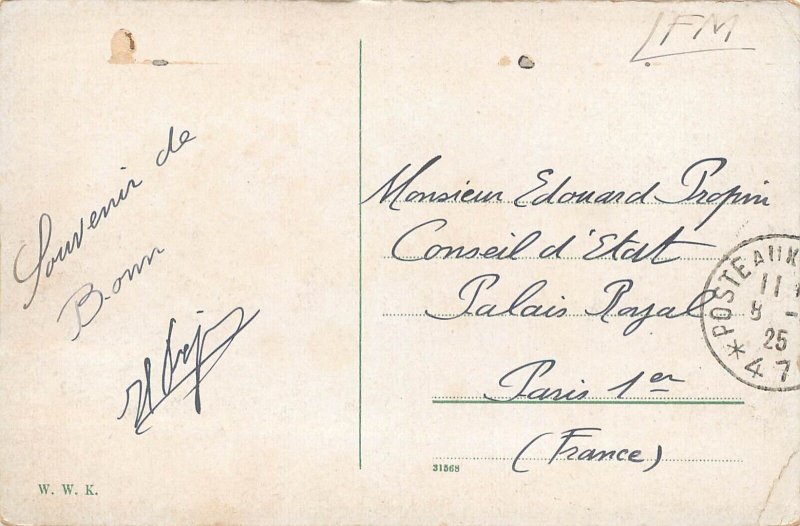 FM
Souvenir de
Bonn
Monsieur Edouard Propin
Conseil d'Etat
Palais Royal
Paris 1er
(France)
POSTE AUX
11
25
47
31568
W. W. K.